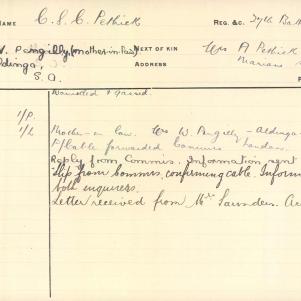 NAME C. S. C. Pethick REG. &C. 27th Batt
W. Pengilly (mother-in-law) NEXT OF KIN Mrs A Pethick
Aldinga, ADDRESS Marion
S. A.
Wounded & gassed
Brother-in-law. Mrs W. Pengilly - Aldinga
Cable forwarded Commis London.
Reply from Commis. Information rent
slip from Commis, confirming cable. Inform
both inquirers.
Letter received from Mr Saunders.